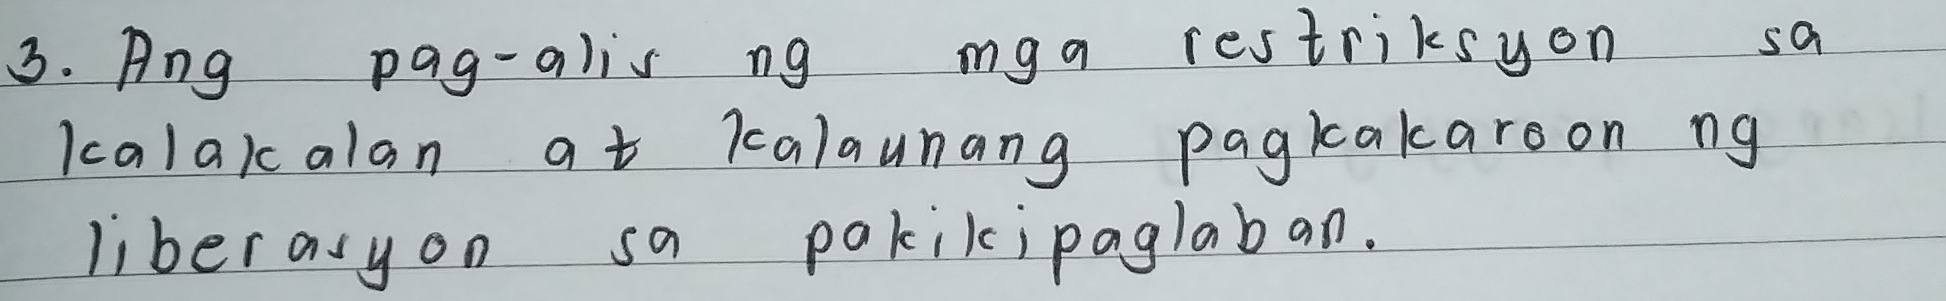 3. Ang pag-alis ng mga restriksyon sa
kalakalan at kalaunang pagkakaroon ng
liberasyon sa pakikipaglaban.